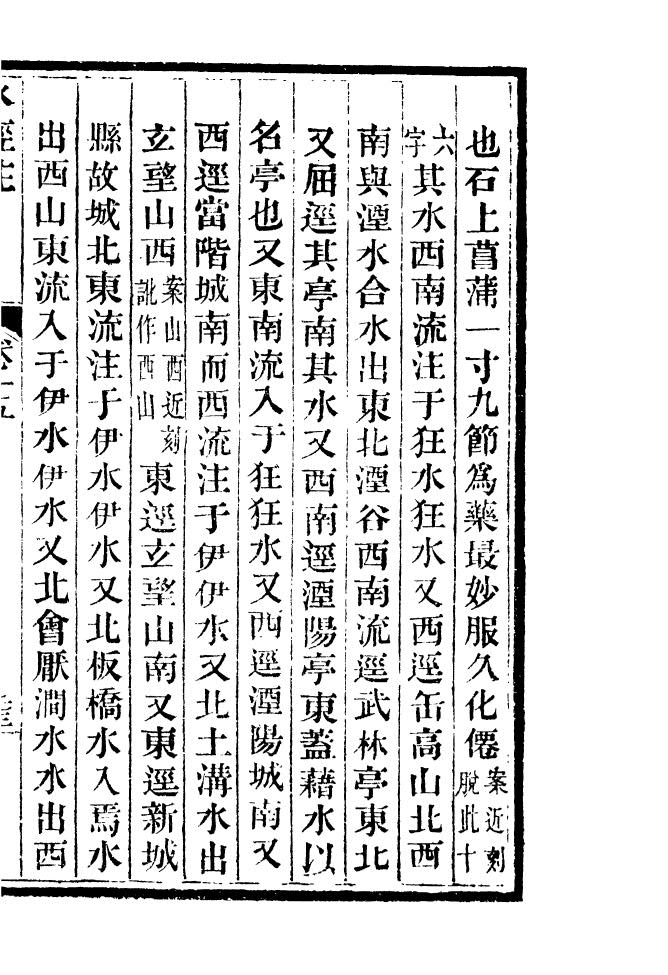 也石上菖蒲一寸九節爲藥最妙服久化僊案近刻脫此十
六字其水西南流注于狂水狂水又西逕缶高山北西
南與湮水合水出東北湮谷西南流逕武林亭東北
又屈逕其亭南其水又西南逕湮陽亭東蓋藉水以
名亭也又東南流入于狂狂水又西逕湮陽城南又
西逕當階城南而西流注于伊伊水又北土溝水出
玄望山西案山西近刻訛作西山東逕玄望山南又東逕新城
縣故城北東流注于伊水伊水又北板橋水入焉水
出西山東流入于伊水伊水又北會厭澗水水出西
水經注 卷十五